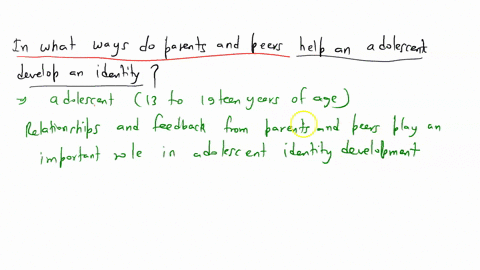 In what ways do parents and peers help an adolescent
develop an identity?
→ adolescent (13 to 19teen years of age)
Relationships and feedback from parents and peers play an
important role in adolescent identity development